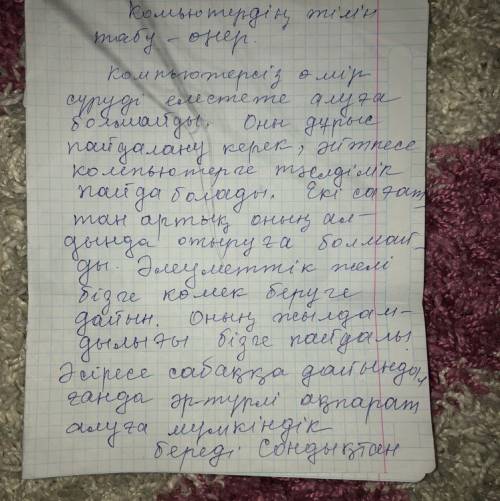 Комьютердің тілін
табу – өнер.
Компьютерсіз өмір
сүруді елестете алуға
болмайды. Оны дұрыс
пайдалану керек, әйтпесе
компьютерге тәуелділік
пайда болады. Екі сағат
тан артық оның ал-
дында отыруға болмай-
ды. Әлеуметтік желі
бізге көмек беруге
дайын. Оның жылдам-
дылығы бізге пайдалы
Әсіресе сабаққа дайындал
ғанда әртүрлі ақпарат
алуға мүмкіндік
береді Сондықтан